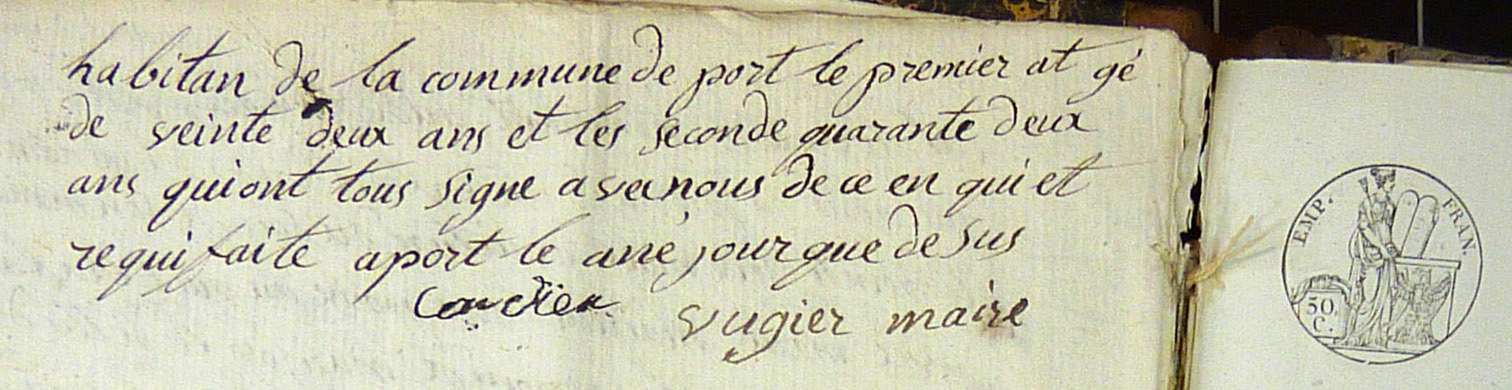 habitan de la commune de port le premier at gé
de veinte deux ans et les seconde quarante deux
ans qui ont tous signe avec nous de ce en qui et
requi faite a port le ane jour que de sus
vugier maire
EMP. FRAN.
50
C.